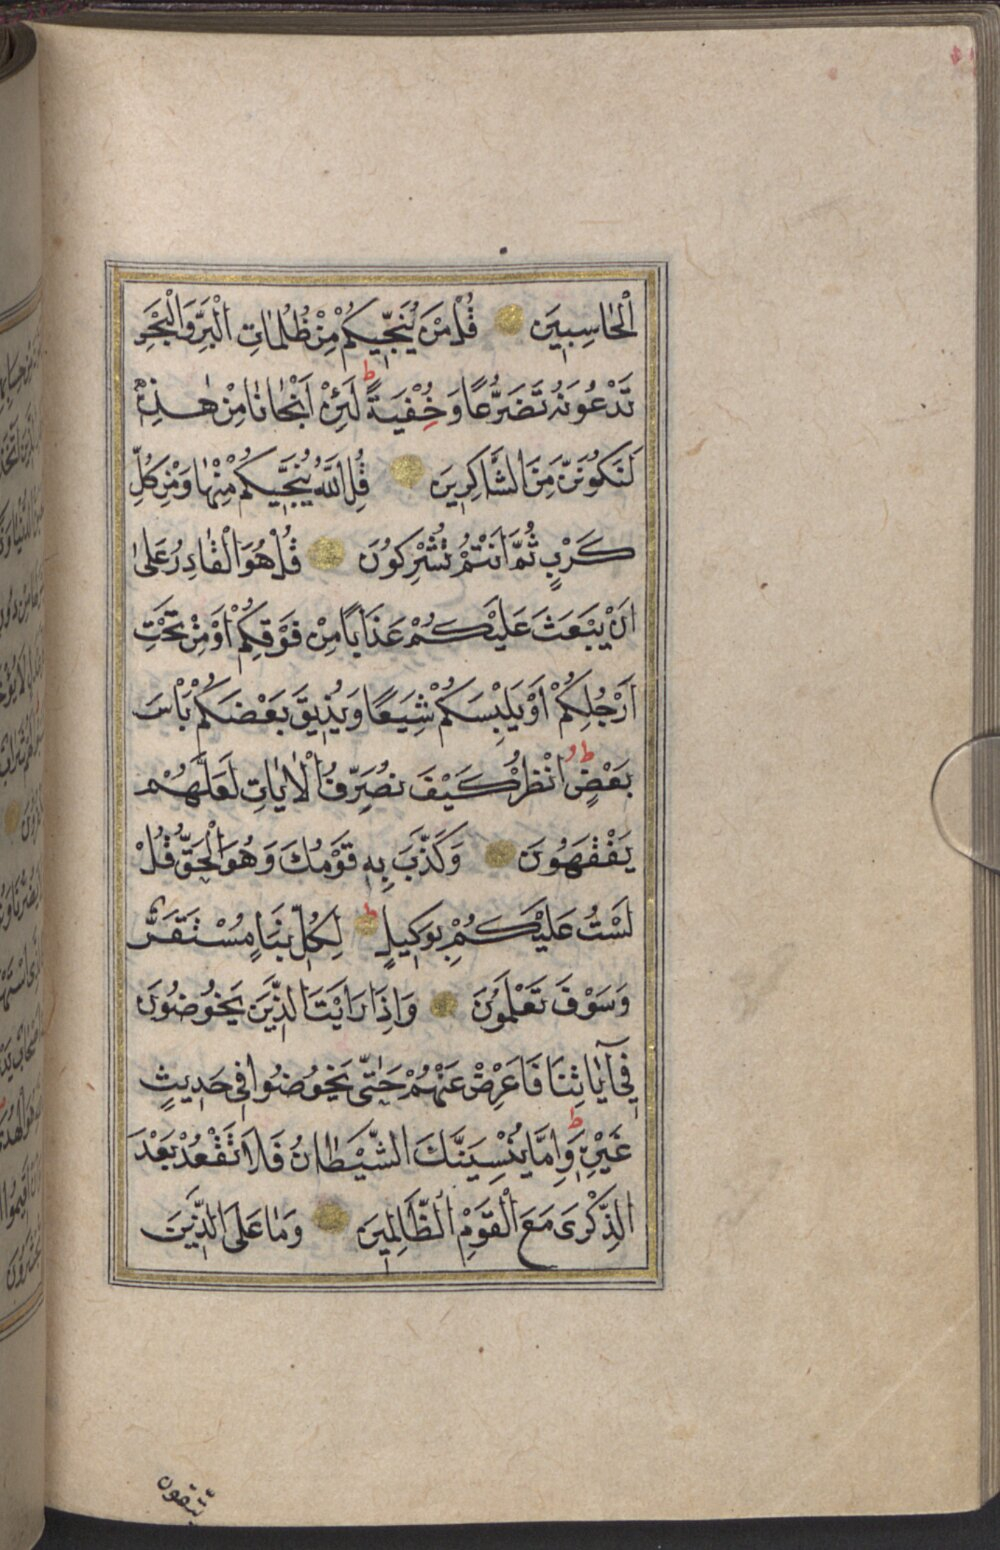 الْحَاسِبِينَ قُلْ مَنْ يُنَجِّيكُمْ مِنْ ظُلُمَاتِ الْبَرِّ وَالْبَحْرِ
تَدْعُونَهُ تَضَرُّعًا وَخُفْيَةً ط لَئِنْ اَنْجٰانَا مِنْ هٰذِهِ
لَنَكُونَنَّ مِنَ الشَّاكِرِينَ قُلِ اللَّهُ يُنَجِّيكُمْ مِنْهَا وَمِنْ كُلِّ
كَرْبٍ ثُمَّ اَنْتُمْ تُشْرِكُونَ قُلْ هُوَ الْقَادِرُ عَلٰى
اَنْ يَبْعَثَ عَلَيْكُمْ عَذَابًا مِنْ فَوْقِكُمْ اَوْ مِنْ تَحْتِ
اَرْجُلِكُمْ اَوْ يَلْبِسَكُمْ شِيَعًا وَيُذِيقَ بَعْضَكُمْ بَاْسَ
بَعْضٍ ط اُنْظُرْ كَيْفَ نُصَرِّفُ الْاٰيَاتِ لَعَلَّهُمْ
يَفْقَهُونَ وَكَذَّبَ بِهِ قَوْمُكَ وَهُوَ الْحَقُّ قُلْ
لَسْتُ عَلَيْكُمْ بِوَكِيلٍ ط لِكُلِّ نَبَاٍ مُسْتَقَرٌّ
وَسَوْفَ تَعْلَمُونَ وَاِذَا رَاَيْتَ الَّذِينَ يَخُوضُونَ
فِي آيَاتِنَا فَاَعْرِضْ عَنْهُمْ حَتّٰى يَخُوضُوا فِي حَدِيثٍ
غَيْرِهِ ط وَاِمَّا يُنْسِيَنَّكَ الشَّيْطَانُ فَلَا تَقْعُدْ بَعْدَ
الذِّكْرَى مَعَ الْقَوْمِ الظَّالِمِينَ وَمَا عَلَى الَّذِينَ
يتقون